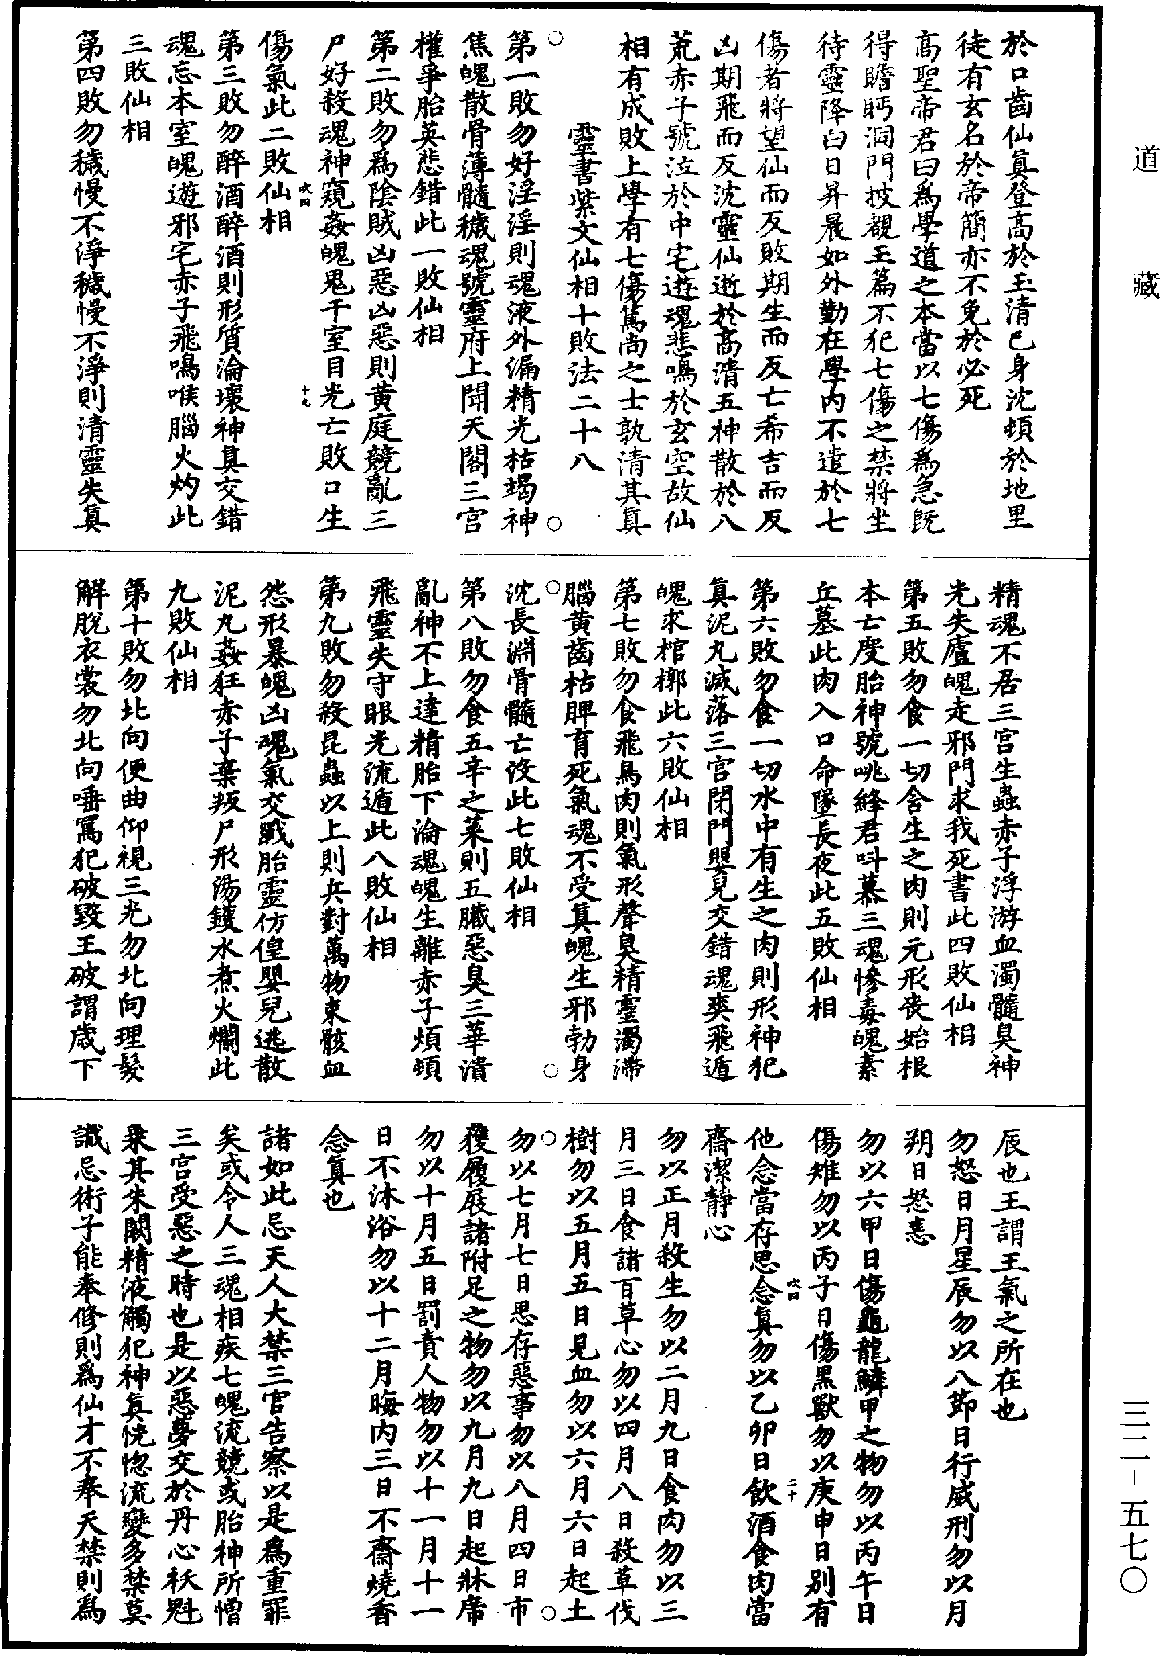 道藏
三二－五七〇
於口齒仙真登高於玉清已身沈頓於地里
徒有玄名於帝簡亦不免於必死
高聖帝君曰為學道之本當以七傷為急既
得瞻眄洞門披覩玉篇不犯七傷之禁將坐
待靈降白日昇晨如外勤在學內不遣於七
傷者將望仙而反敗期生而反亡希吉而反
凶期飛而反沈靈仙逝於高清五神散於八
荒赤子號泣於中宅遊魂悲鳴於玄空故仙
相有成敗上學有七傷篤尚之士孰清其真
靈書紫文仙相十敗法二十八
第一敗勿好淫淫則魂液外漏精光枯竭神
焦魄散骨薄髓穢魂號靈府上聞天閣三宮
權爭胎英悲錯此一敗仙相
第二敗勿為陰賊凶惡凶惡則黃庭競亂三
尸好殺魂神窺姦魄鬼干室目光亡敗口生
傷氣此二敗仙相
第三敗勿醉酒醉酒則形質淪壞神真交錯
魂忘本室魄遊邪宅赤子飛鳴喉腦火灼此
三敗仙相
第四敗勿穢慢不淨穢慢不淨則清靈失真
精魂不居三宮生蟲赤子浮游血濁髓臭神
光失廬魄走邪門求我死書此四敗仙相
第五敗勿食一切含生之肉則元形喪始根
本亡度胎神號咷絳君呌慕三魂慘毒魄素
丘墓此肉入口命墜長夜此五敗仙相
第六敗勿食一切水中有生之肉則形神犯
真泥丸滅落三宮閉門嬰兒交錯魂爽飛遁
魄求棺槨此六敗仙相
第七敗勿食飛鳥肉則氣形聲臭精靈濁滯
腦黃齒枯脾育死氣魂不受真魄生邪勃身
沈長淵骨髓亡沒此七敗仙相
第八敗勿食五辛之菜則五臟惡臭三華潰
亂神不上達精胎下淪魂魄生離赤子煩頓
飛靈失守眼光流遁此八敗仙相
第九敗勿殺昆蟲以上則兵對萬物東骸血
怨形暴魄凶魂氣交戰胎靈仿偟嬰兒逃散
泥丸姦狂赤子棄叛尸形湯鑊水煮火爛此
九敗仙相
第十敗勿北向便曲仰視三光勿北向理髮
解脫衣裳勿北向唾罵犯破毀王破謂歲下
辰也王謂王氣之所在也
勿怒日月星辰勿以八節日行威刑勿以月
朔日怒恚
勿以六甲日傷龜龍鱗甲之物勿以丙午日
傷雉勿以丙子日傷黑獸勿以庚申日別有
他念當存思念真勿以乙卯日飲酒食肉當
齋潔靜心
勿以正月殺生勿以二月九日食肉勿以三
月三日食諸百草心勿以四月八日殺草伐
樹勿以五月五日見血勿以六月六日起土
勿以七月七日思存惡事勿以八月四日市
穫履屐諸附足之物勿以九月九日起牀席
勿以十月五日罰責人物勿以十一月十一
日不沐浴勿以十二月晦內三日不齋燒香
念真也
諸如此忌天人大禁三官告察以是為重罪
矣或令人三魂相疾七魄流競或胎神所憎
三宮受惡之時也是以惡夢交於丹心袄魁
乗其朱闕精液觸犯神真恍惚流變多禁莫
識忌術子能奉修則為仙才不奉天禁則為